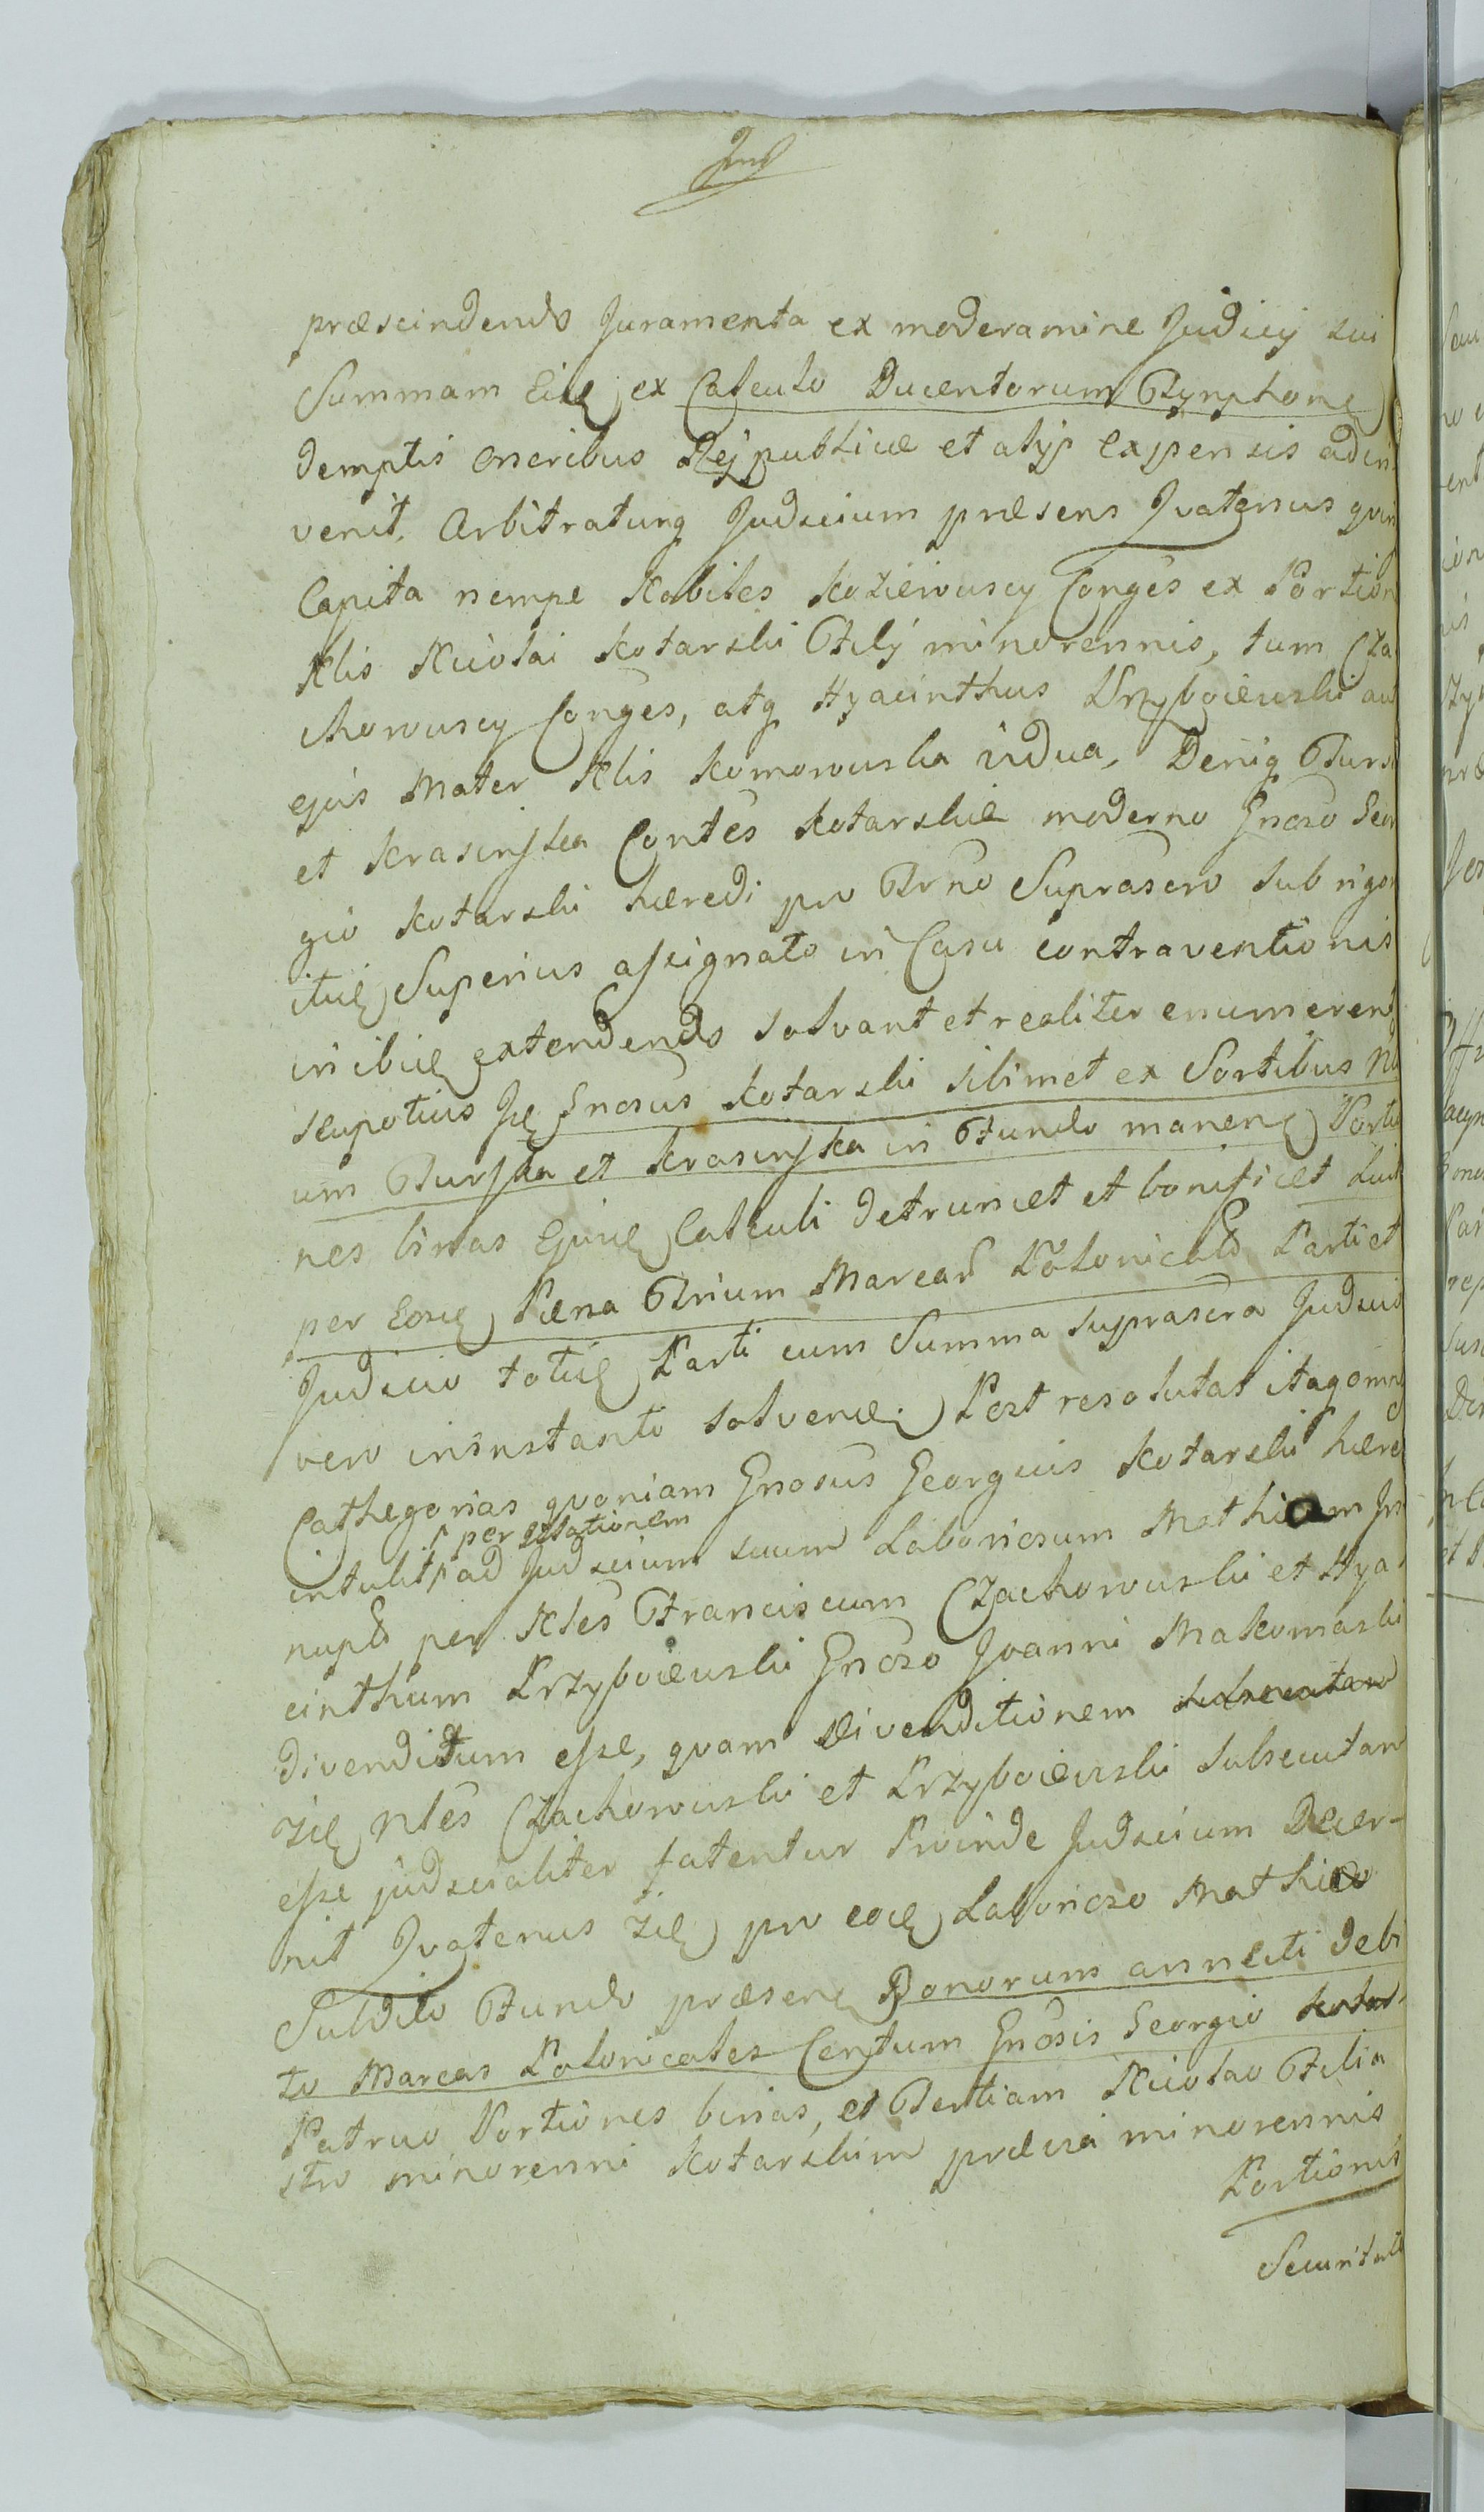 præscindendo Juramenta ex moderamine Judicij sui
Summam Eiꝗ ex Calculo Ducentorum Tÿmphonꝗ
demptis oneribus Reÿpublicæ et alÿs expensis adin-
venit, Arbitraturq Judicium præsens Qvatenus qvin
Capita nempe Nobiles Koziewuscy Conges ex Portion
Nlis Nicolai Kotarski Filÿ minorennis, tum Cza
chowuscy Conges, atq Hyacinthus Przyboiewski aut
ejus Mater Nlis Komorowska vidua, Deniq Burs
et Krasinska Contes Kotarskie moderno Gnoso Geor
gio Kotarski hæredi pro Trno Suprascro sub rigor
ituꝗ Superius assignato in Casu contraventionis
inibiꝗ extendendo solvant et realiter enumerent
seupotius Jꝗ Gnosus Kotarski sibimet ex Sortibus No
um Burska et Krasinska in Fundo manenꝗ Portio
nes binas Ejusꝗ Calculi detruncet et bonificet Luit
per Eosꝗ Pæna Trium Marcar Polonicaliũ Parti et
Judicio totiꝗ Parti cum Summa suprascra Judicio
vero ininstanti solvenꝗ. Post resolutas itaq omnꝗ
Cathegorias qvoniam Gnosus Georgius Kotarski hære
per dilationem
intulit ad Judicium suum Laboriosum Mathiam
nups per Nles Franciscum Czachowuski et Hya-
cinthum Przyboiewski Gnoso Joanni Makomaski
divenditum esse, qvam Divenditionem subsecutam
Ziꝗ Nles Czachowuski et Przyboiewski subsecutam
esse judicialiter fatentur Proinde Judicium Decer-
nit Qvatenus Ziꝗ pro eoꝗ Laborioso Mathia
Subdito Fundo præsenꝗ Bonorum annecti debi
to Marcas Polonicales Centum Gnosis Georgio Kotar-
Patruo Portiones binas, et Tertiam Nicolao Filia
stro minorenni Kotarskim præcia minorennis
Portionis
Securitate